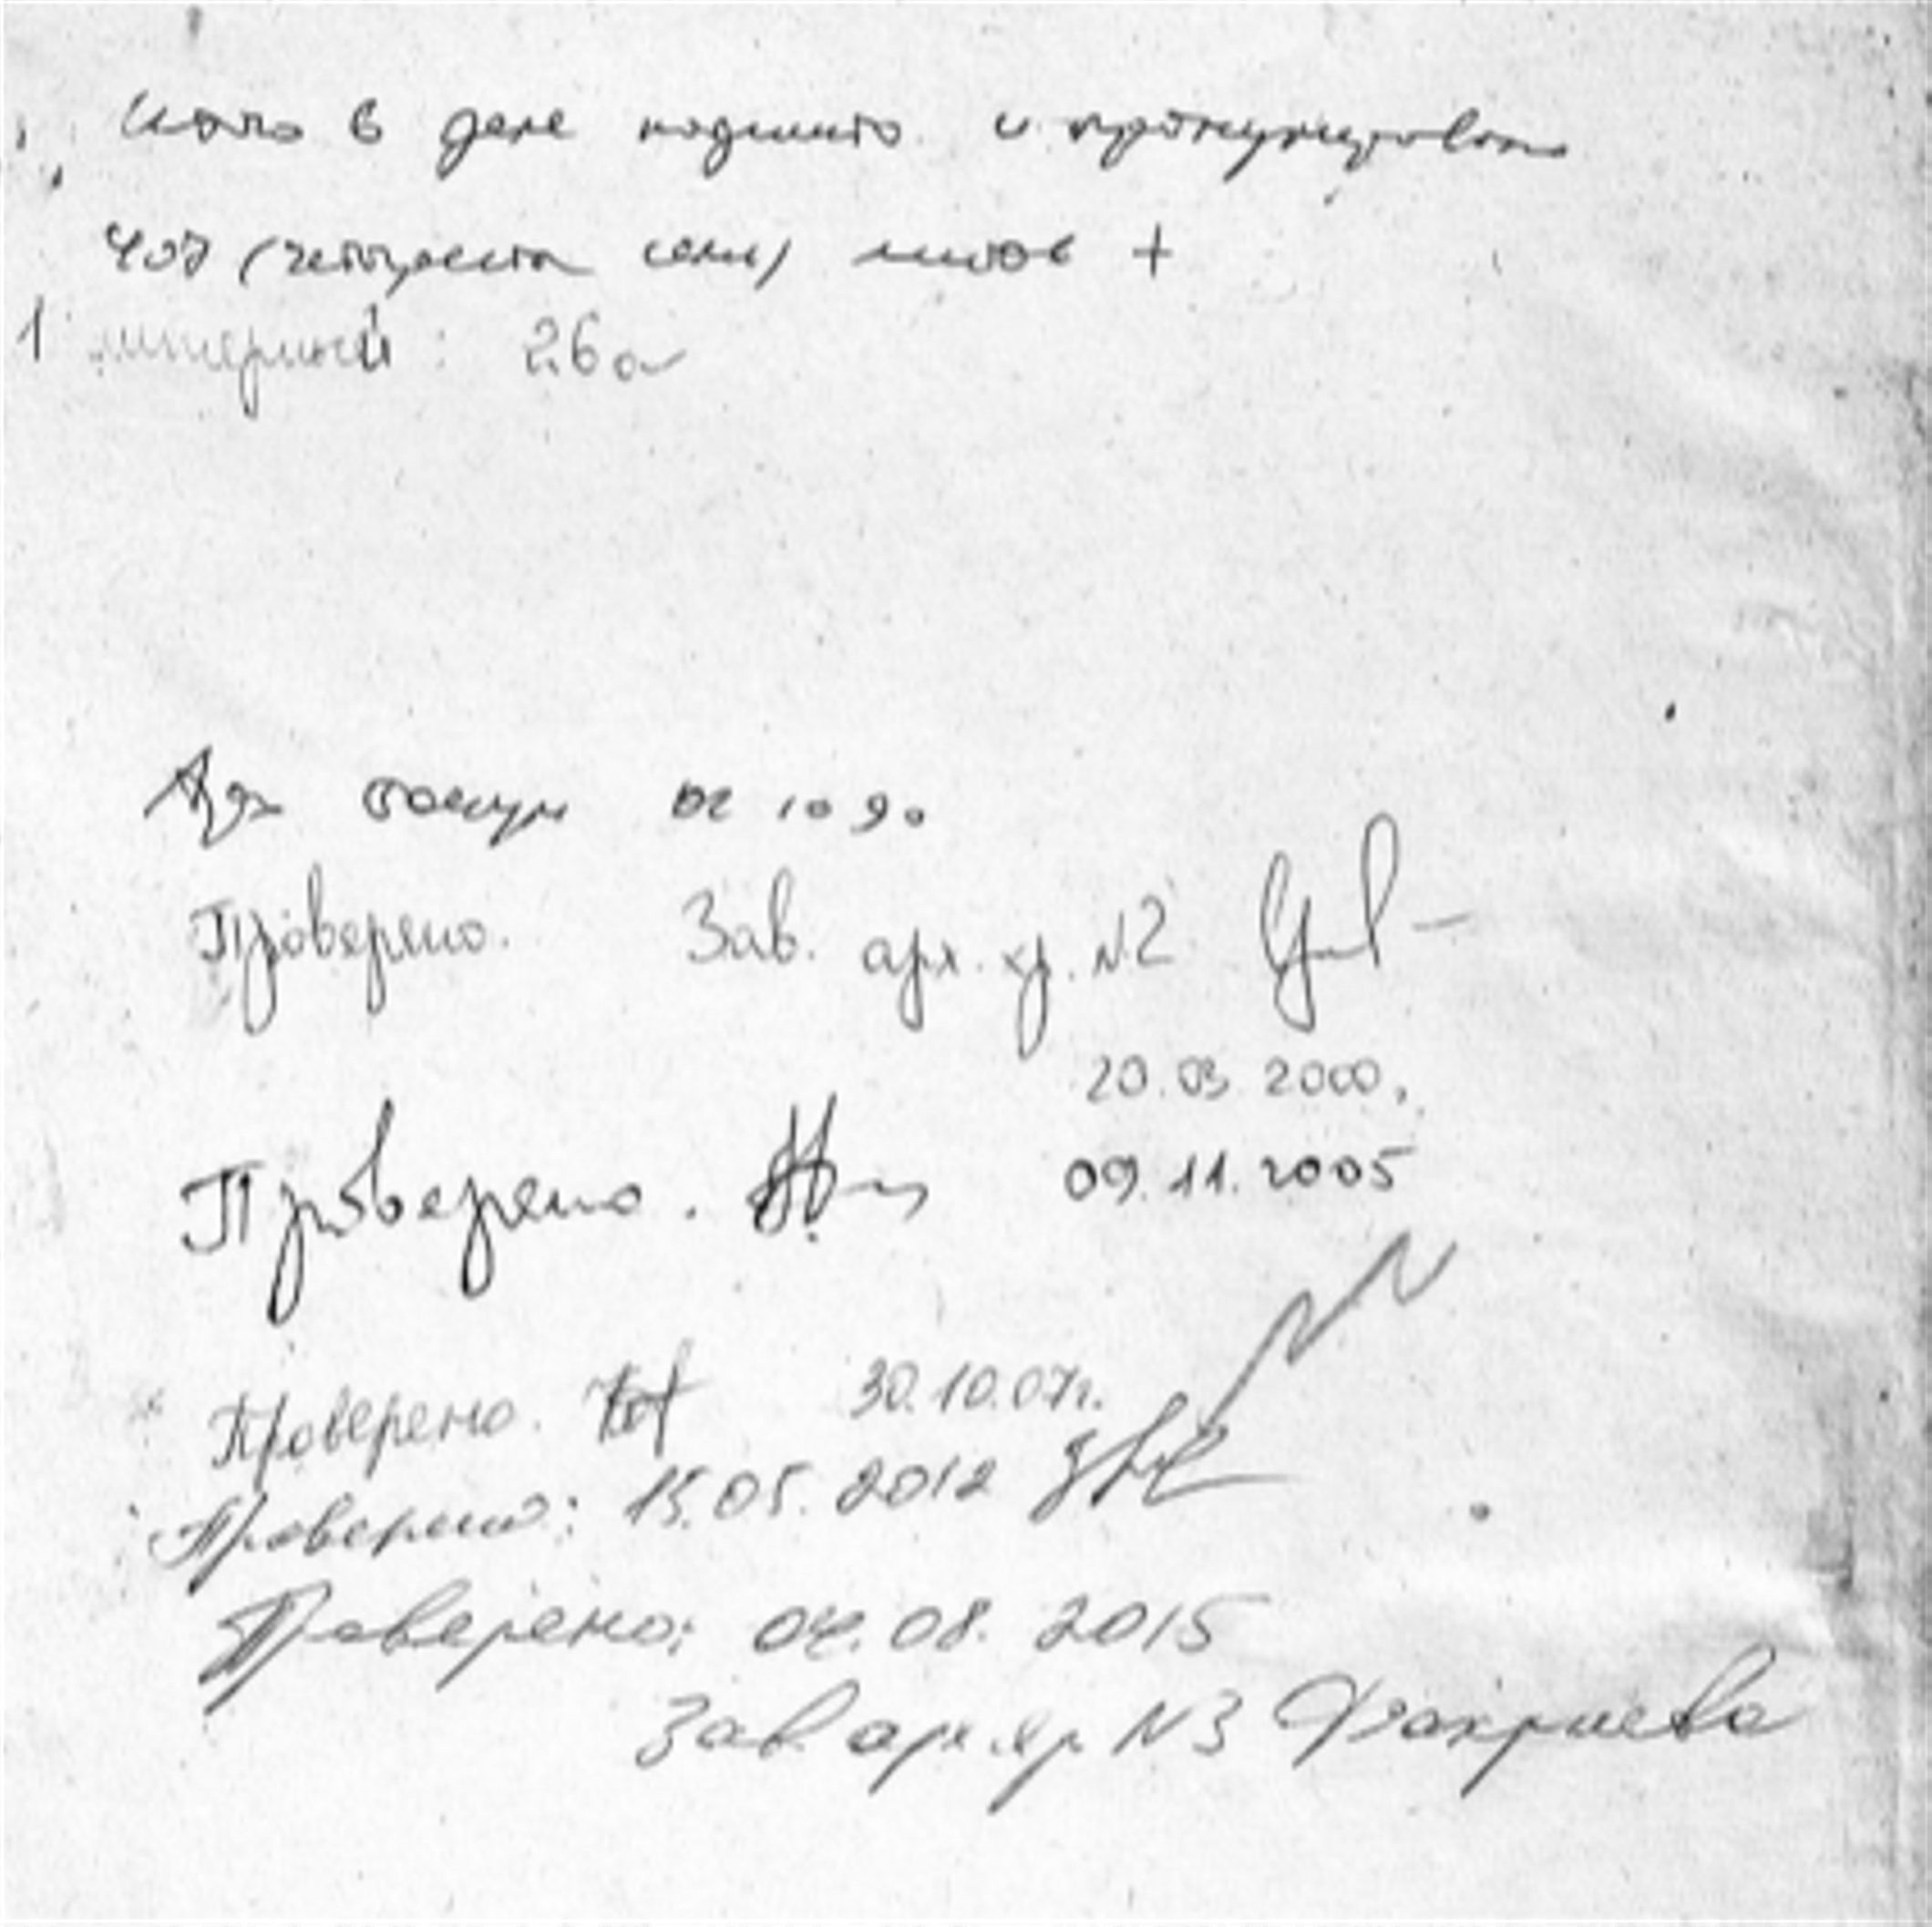 в деле подшито и пронумеровано
407 (четыреста семь) листов +
1 литерный: 26а
02 10 90
Проверено. Зав. арх. хр. N2
20.03 2000.
Проверено. 09.11.2005
Проверено. 30.10.07г.
Проверено: 15.05.2012
Проверено: 04.08.2015
Зав. арх. хр. N3